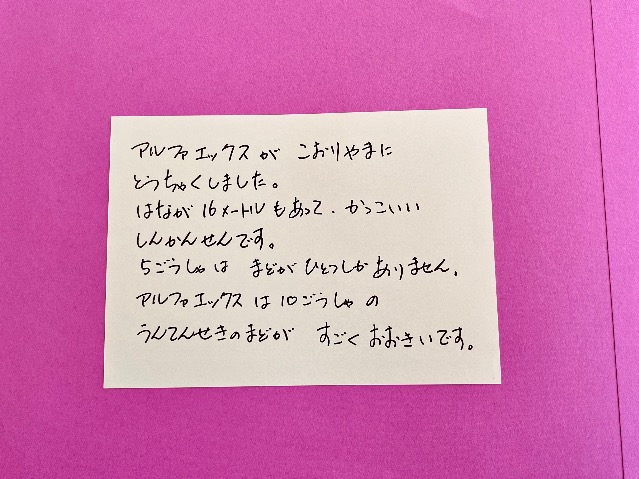 アルファエックスが こおりやまに
とうちゃくしました。
はなが 16メートルもあって、かっこいい
しんかんせんです。
5ごうしゃは まどがひとつしかありません。
アルファエックスは10ごうしゃの
うんてんせきのまどが すごくおおきいです。